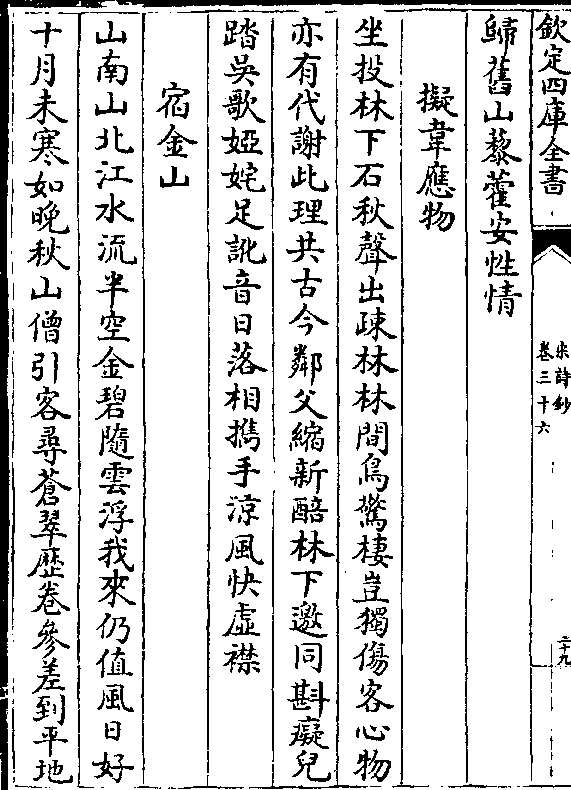 欽定四庫全書
宋詩鈔
卷三十六
二十九
歸舊山藜藿安性情
擬韋應物
坐投林下石秋聲出疎林林間鳥驚棲豈獨傷客心物
亦有代謝此理共古今鄰父縮新醅林下邀同斟癡兒
踏吳歌婭姹足訛音日落相攜手涼風快虛襟
宿金山
山南山北江水流半空金碧隨雲浮我來仍值風日好
十月未寒如晚秋山僧引客尋蒼翠歷卷參差到平地